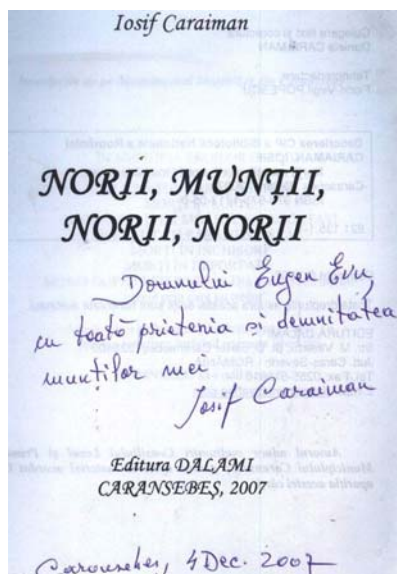 Iosif Caraiman
NORII, MUNȚII,
NORII, NORII
Domnului Eugen Evu,
cu toată prietenia și demnitatea
munților mei
Iosif Caraiman
Editura DALAMI
CARANSEBEȘ, 2007
Caransebes, 4 Dec. 2007